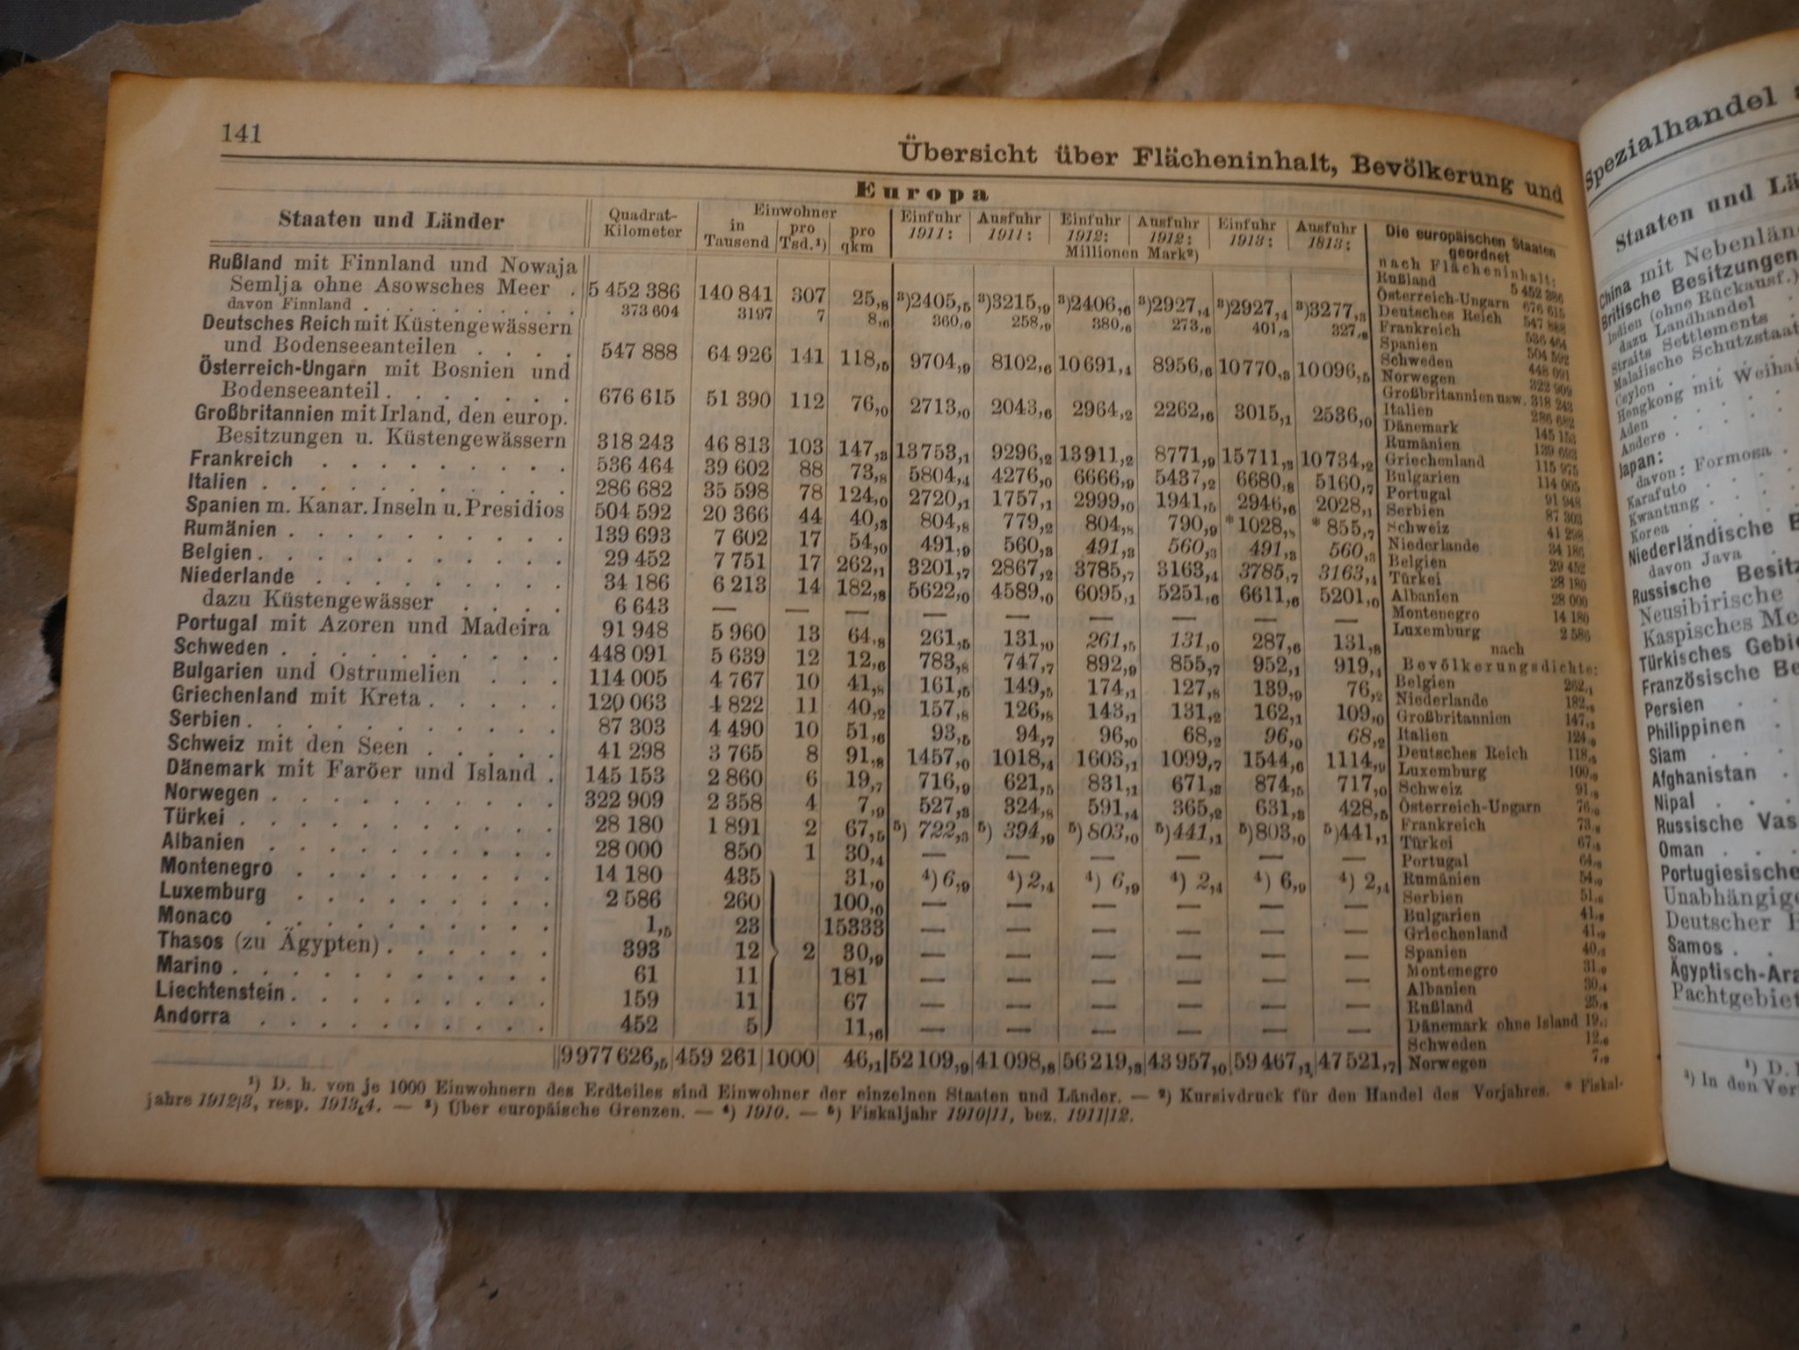 141
Übersicht über Flächeninhalt, Bevölkerung und
Europa
Staaten und Länder Quadrat-Kilometer Einwohner in Tausend pro Tsd.¹) pro qkm Einfuhr 1911: Ausfuhr 1911: Einfuhr 1912: Ausfuhr 1912: Einfuhr 1913: Ausfuhr 1813: Millionen Mark²)
Rußland mit Finnland und Nowaja
Semlja ohne Asowsches Meer . 5 452 386 140 841 307 25,8 ³)2405,5 ³)3215,9 ³)2406,6 ³)2927,4 ³)2927,4 ³)3277,3
davon Finnland 373 604 3197 7 8,6 360,0 258,9 380,6 273,6 401,3 327,8
Deutsches Reich mit Küstengewässern
und Bodenseeanteilen 547 888 64 926 141 118,5 9704,9 8102,6 10 691,4 8956,6 10 770,3 10 096,5
Österreich-Ungarn mit Bosnien und
Bodenseeanteil 676 615 51 390 112 76,0 2713,0 2043,6 2964,2 2262,6 3015,1 2536,0
Großbritannien mit Irland, den europ.
Besitzungen u. Küstengewässern 318 243 46 813 103 147,3 13753,1 9296,2 13 911,2 8771,9 15 711,3 10 734,2
Frankreich 536 464 39 602 88 73,8 5804,4 4276,0 6666,9 5437,2 6680,8 5160,7
Italien 286 682 35 598 78 124,0 2720,1 1757,1 2999,0 1941,5 2946,6 2028,1
Spanien m. Kanar. Inseln u. Presidios 504 592 20 366 44 40,3 804,8 779,2 804,8 790,9 *1028,8 *855,7
Rumänien 139 693 7 602 17 54,0 491,9 560,3 491,3 560,3 491,3 560,3
Belgien 29 452 7 751 17 262,1 3201,7 2867,2 3785,7 3163,4 3785,7 3163,4
Niederlande 34 186 6 213 14 182,8 5622,0 4589,0 6095,1 5251,6 6611,6 5201,0
dazu Küstengewässer 6 643 — — — — — — — — —
Portugal mit Azoren und Madeira 91 948 5 960 13 64,8 261,5 131,0 261,5 131,0 287,6 131,8
Schweden 448 091 5 639 12 12,6 783,8 747,7 892,9 855,7 952,1 919,4
Bulgarien und Ostrumelien 114 005 4 767 10 41,8 161,5 149,5 174,1 127,8 139,9 76,2
Griechenland mit Kreta 120 063 4 822 11 40,2 157,8 126,8 143,1 131,2 162,1 109,0
Serbien 87 303 4 490 10 51,6 93,5 94,7 96,0 68,2 96,0 68,2
Schweiz mit den Seen 41 298 3 765 8 91,8 1457,0 1018,4 1603,1 1099,7 1544,6 1114,9
Dänemark mit Faröer und Island . 145 153 2 860 6 19,7 716,9 621,5 831,1 671,3 874,5 717,0
Norwegen 322 909 2 358 4 7,9 527,3 324,8 591,4 365,2 631,3 428,5
Türkei 28 180 1 891 2 67,5 ⁵) 722,3 ⁵) 394,9 ⁵)803,0 ⁵)441,1 ⁵)803,0 ⁵)441,1
Albanien 28 000 850 1 30,4 — — — — — —
Montenegro 14 180 435 31,0 ⁴)6,9 ⁴)2,4 ⁴) 6,9 ⁴) 2,4 ⁴) 6,9 ⁴) 2,4
Luxemburg 2 586 260 100,0 — — — — — —
Monaco 1,5 23 15333 — — — — — —
Thasos (zu Ägypten) 393 12 2 30,9 — — — — — —
Marino 61 11 181 — — — — — —
Liechtenstein 159 11 67 — — — — — —
Andorra 452 5 11,6 — — — — — —
9 977 626,5 459 261 1000 46,1 52 109,9 41 098,8 56 219,3 43 957,0 59 467,1 47 521,7
Die europäischen Staaten
geordnet
nach Flächeninhalt:
Rußland 5 452 386
Österreich-Ungarn 676 615
Deutsches Reich 547 888
Frankreich 536 464
Spanien 504 592
Schweden 448 091
Norwegen 322 909
Großbritannien usw. 318 243
Italien 286 682
Dänemark 145 153
Rumänien 139 693
Griechenland 115 975
Bulgarien 114 005
Portugal 91 948
Serbien 87 303
Schweiz 41 298
Niederlande 34 186
Belgien 29 452
Türkei 28 180
Albanien 28 000
Montenegro 14 180
Luxemburg 2 586
nach
Bevölkerungsdichte:
Belgien 262,1
Niederlande 182,8
Großbritannien 147,3
Italien 124,0
Deutsches Reich 118,5
Luxemburg 100,0
Schweiz 91,8
Österreich-Ungarn 76,0
Frankreich 73,8
Türkei 67,5
Portugal 64,8
Rumänien 54,0
Serbien 51,6
Bulgarien 41,8
Griechenland
Spanien 40,3
Montenegro 31,0
Albanien 30,4
Rußland 25,8
Dänemark ohne Island 19,7
Schweden 12,6
Norwegen 7,9
¹) D. h. von je 1000 Einwohnern des Erdteiles sind Einwohner der einzelnen Staaten und Länder. — ²) Kursivdruck für den Handel des Vorjahres. * Fiskal-
jahre 1912/3, resp. 1913/4. — ³) Über europäische Grenzen. — ⁴) 1910. — ⁵) Fiskaljahr 1910/11, bez. 1911/12.
Spezialhandel
Staaten und Lä
China mit Nebenlän
Britische Besitzungen
Indien (ohne Rückausf.)
dazu Landhandel
Straits Settlements
Malaiische Schutzstaat
Ceylon
Hongkong mit Weihai
Aden
Andere
Japan:
davon: Formosa
Karafuto
Kwantung
Korea
Niederländische B
davon Java
Russische Besitz
Neusibirische
Kaspisches Me
Türkisches Gebi
Französische Be
Persien
Philippinen
Siam
Afghanistan
Nipal
Russische Vas
Oman
Portugiesische
Unabhängige
Deutscher
Samos
Ägyptisch-Ara
Pachtgebiet
¹) D.
³) In den Ver